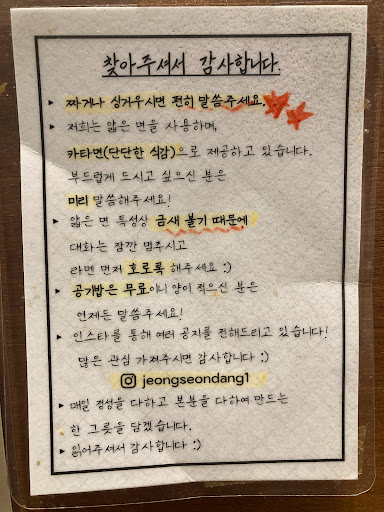 찾아주셔서 감사합니다.
▸ 짜거나 싱거우시면 편히 말씀주세요.
▸ 저희는 얇은 면을 사용하며,
카타면(단단한 식감)으로 제공하고 있습니다.
부드럽게 드시고 싶으신 분은
미리 말씀해주세요!
▸ 얇은 면 특성상 금새 불기 때문에
대화는 잠깐 멈추시고
라면 먼저 호로록 해주세요 :)
▸ 공기밥은 무료이니 양이 적으신 분은
언제든 말씀주세요!
▸ 인스타를 통해 여러 공지를 전해드리고 있습니다!
많은 관심 가져주시면 감사합니다 :)
jeongseondang1
▸ 매일 정성을 다하고 본분을 다하여 만드는
한 그릇을 담겠습니다.
▸ 읽어주셔서 감사합니다 :)